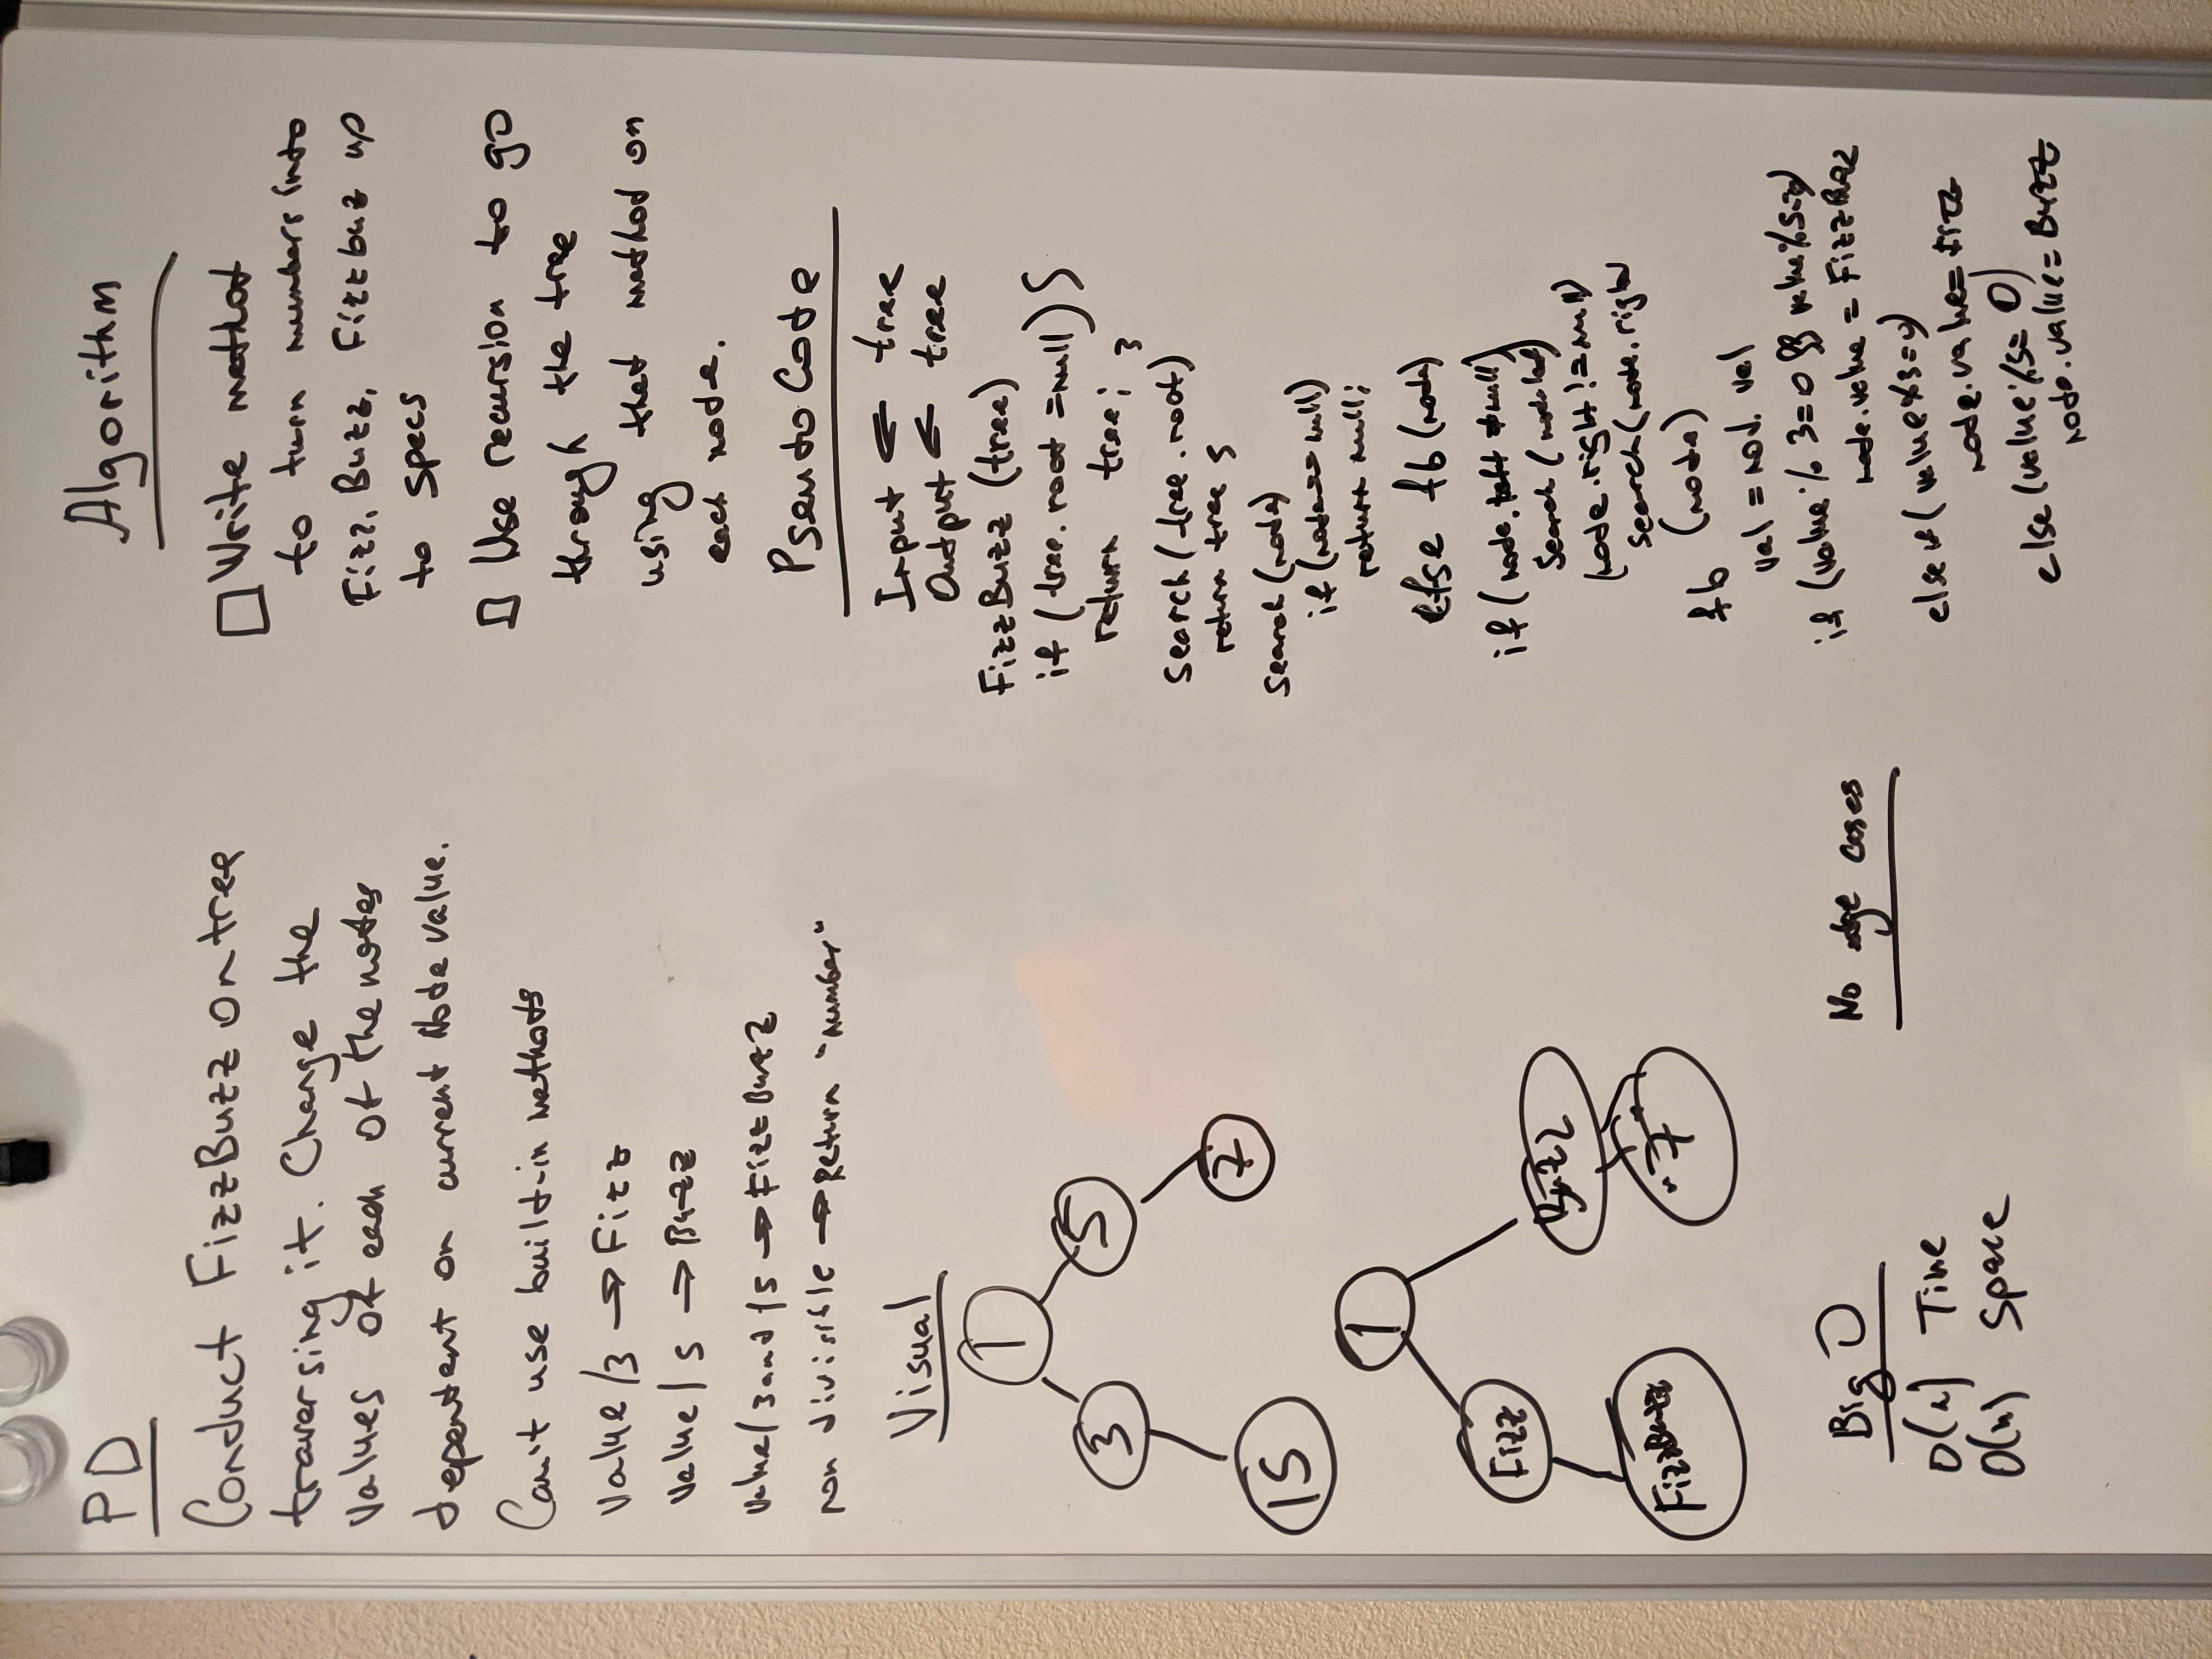 PD
Conduct FizzBuzz on tree
traversing it. Change the
values of each of the nodes
dependent on current Node value.
Can't use built-in methods
value/3 → Fizz
value/5 → Buzz
value/3 and /5 → FizzBuzz
non divisible → Return "number"
Visual
1
3
5
15
7
1
Fizz
Buzz
FizzBuzz
"7"
Big O
O(n) Time
O(n) Space
No edge cases
Algorithm
□ Write method
to turn numbers into
Fizz, Buzz, Fizzbuz up
to specs
□ Use recursion to go
through the tree
using that method on
each node.
Pseudo Code
Input ← tree
Output ← tree
FizzBuzz (tree)
if (tree.root =null) {
return tree; }
Search (tree.root)
return tree;
Search (node)
if (node == null)
return null;
else fb (node)
if (node.left != null)
Search (node.left)
(node.right != null)
Search (node.right
fb (node)
val = nod. val
if (value % 3=0 && value%5=0)
node.value = FizzBuzz
else if (value%3=0)
node.value= Fizz
else (value%5= 0)
node.value= Buzz